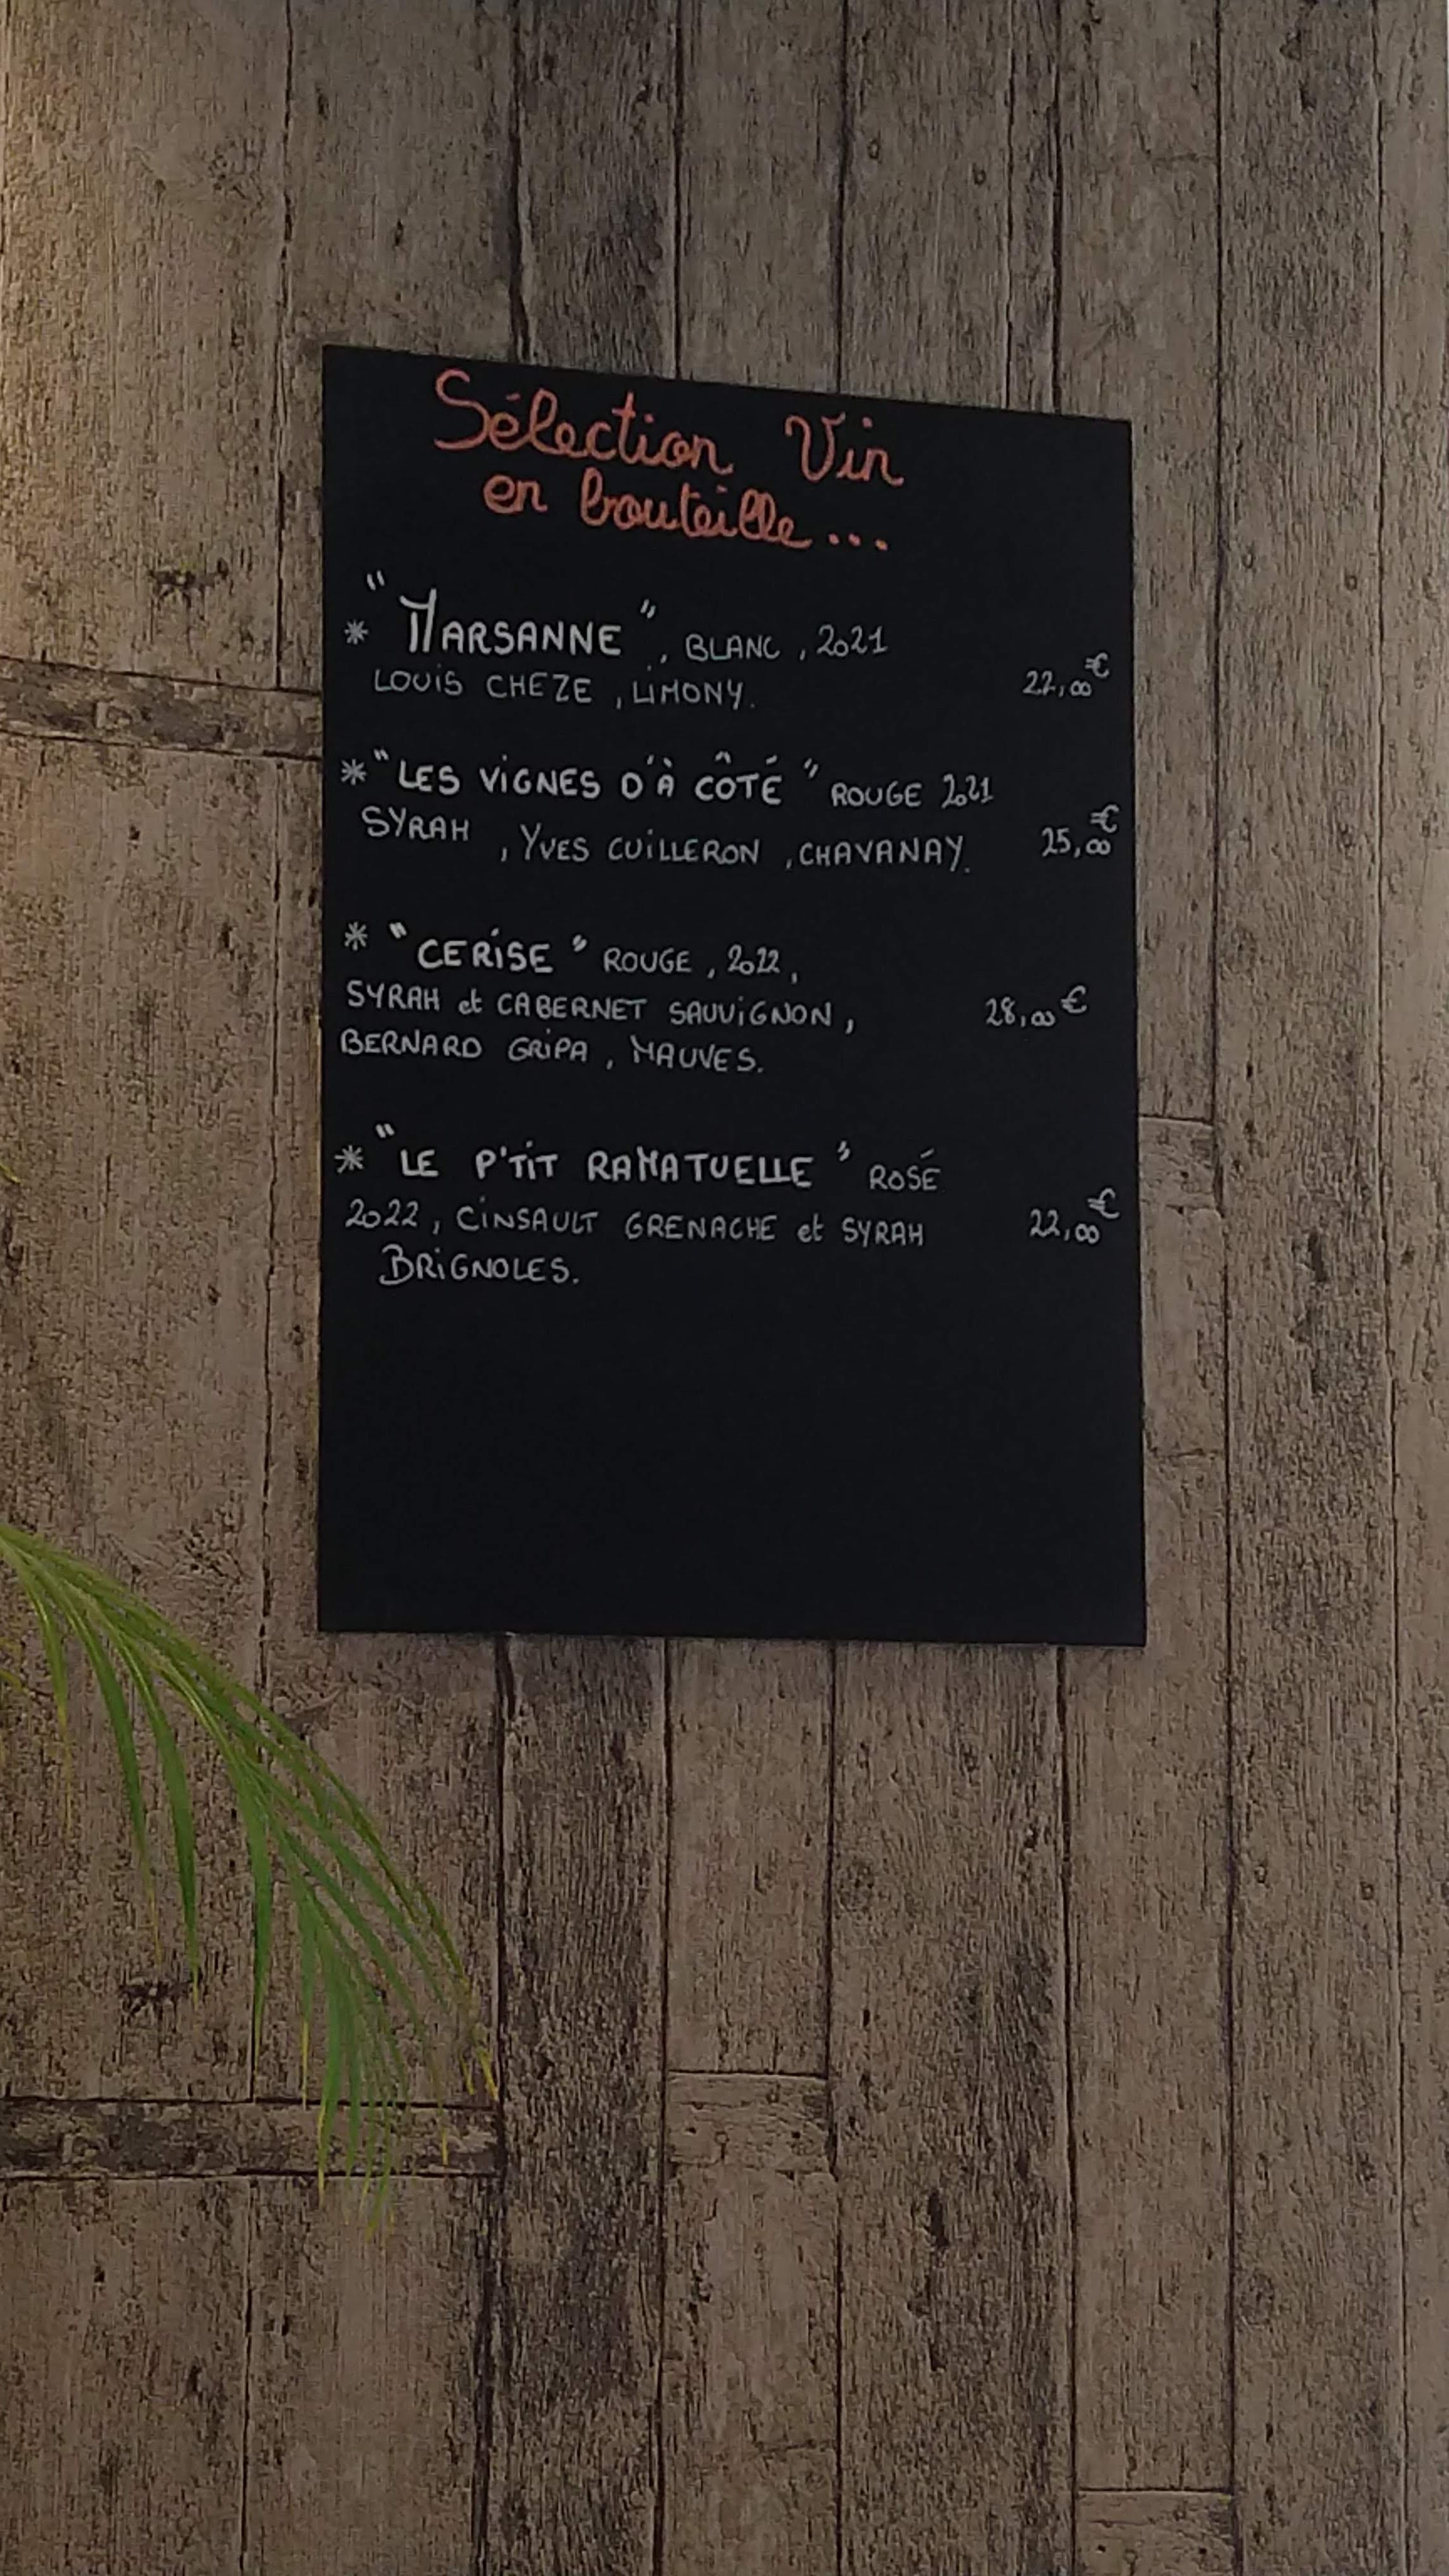 Sélection Vin
en bouteille...
* "MARSANNE", BLANC, 2021
LOUIS CHEZE, LIMONY. 22,00€
* "LES VIGNES D'À CÔTÉ" ROUGE 2021
SYRAH, YVES CUILLERON, CHAVANAY. 25,00€
* "CERISE" ROUGE, 2022,
SYRAH et CABERNET SAUVIGNON, 28,00€
BERNARD GRIPA, MAUVES.
* "LE P'TIT RAMATUELLE" ROSÉ
2022, CINSAULT GRENACHE et SYRAH 22,00€
BRIGNOLES.